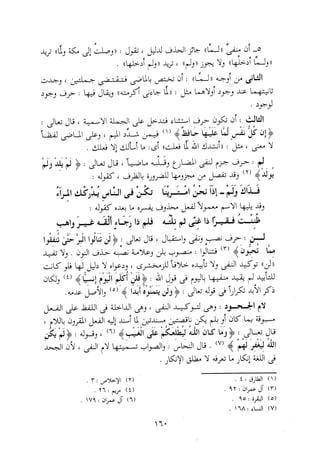 ٥ـ أن منفىَّ «لـمَّا» جائز الحذف لدليل ، تقول : «وصلتُ إلى مكة ولمَّا» تريد
«ولـمَّا أدخلْها» ولا يجوز «ولم» ، تريد «ولم أدخلها» .
الثانى من أوجه «لـمَّا» : أن تختص بالماضى فتقتضى جملتين ، وجدت
ثانيتهما عند وجود أولاهما مثل : «لمَّا جاءنى أكرمته» ويقال فيها : حرف وجود
لوجود .
الثالث : أن تكون حرف استثناء فتدخل على الجملة الاسمية ، قال تعالى :
﴿إن كُلُّ نَفْسٍ لَّمَّا عَلَيْهَا حَافِظٌ﴾ (١) فيمن شدَّد الميم ، وعلى الماضى لفظاً
لا معنى ، مثل : «أنشدك اللهَ لمَّا فعلت» أى : ما أسألك إلا فعلك.
لم : حرف جزم لنفى المضارع وقلبه ماضياً ، قال تعالى : ﴿لَمْ يَلِدْ وَلَمْ
يُولَدْ﴾ (٢) وقد تفصل من مجزومها للضرورة بالظرف ، كقوله :
فَذَاكَ وَلَمْ ـ إِذَا نَحْنُ امْتَرَيْنَا تَكُنْ فى النَّاسِ يُدْرِكُكَ الْمِرَاءُ
وقد يليها الاسم معمولاً لفعل محذوف يفسره ما بعده كقوله :
ظُنِنْتُ فَقِيراً ذَا غِنًى ثم نِلْتُه فلم ذا رَجَاءٍ أَلْقَه غيرَ واهِبِ
لـن : حرف نصب ونفى واستقبال ، قال تعالى ﴿لَن تَنَالُوا الْبِرَّ حَتَّىٰ تُنفِقُوا
مِمَّا تُحِبُّونَ﴾ (٣) فتنالوا : منصوب بلن وعلامة نصبه حذف النون . ولا تفيد
«لن» توكيد النفى ولا تأبيده خلافاً للزمخشرى ، ودعواه لا دليل لها فلو كانت
للتأبيد لم يقيد منفيها باليوم فى قول الله : ﴿فَلَنْ أُكَلِّمَ الْيَوْمَ إِنسِيًّا﴾ (٤) ولكان
ذكر الأبد تكراراً فى قوله تعالى : ﴿وَلَن يَتَمَنَّوْهُ أَبَدًا﴾ (٥) والأصل عدمه.
لام الجـحــود : وهى لتـوكيـد النفى ، وهى الداخلة فى اللفظ على الفعل
مسبوقة بما كان أو بلم يكن ناقصتين مسندتين لما أسند إليه الفعل المقرون باللام ،
قال تعـالى : ﴿وَمَا كَانَ اللَّهُ لِيُطْلِعَكُمْ عَلَى الْغَيْبِ﴾ (٦) ، وقـوله : ﴿لَمْ يَكُنِ
اللَّهُ لِيَغْفِرَ لَهُمْ﴾ (٧) . قال النحاس : والصواب تسميتها لام النفى ، لأن الجحد
فى اللغة إنكار ما تعرفه لا مطلق الإنكار .
(١) الطارق : ٤ . (٢) الإخلاص : ٣ .
(٣) آل عمران : ٩٢ . (٤) مريم : ٢٦ .
(٥) البقرة : ٩٥ . (٦) آل عمران : ١٧٩ .
(٧) النساء : ١٦٨ .
١٦٠